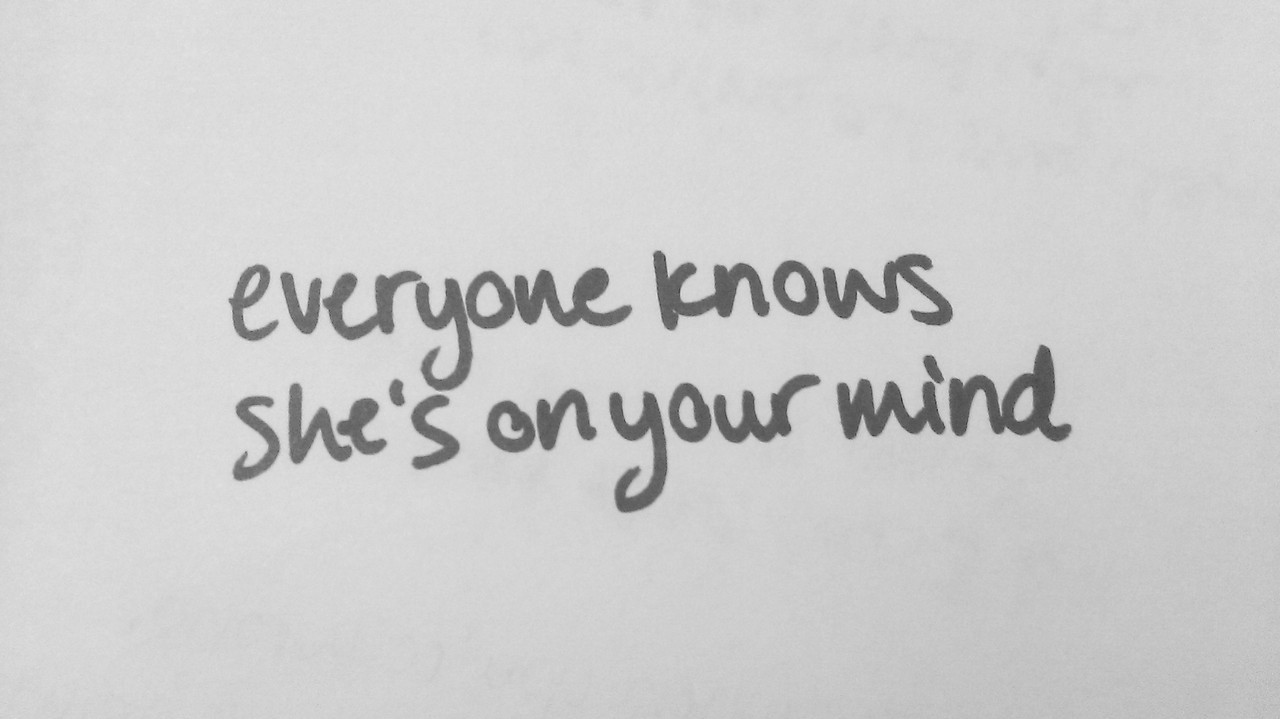 everyone knows
she's on your mind